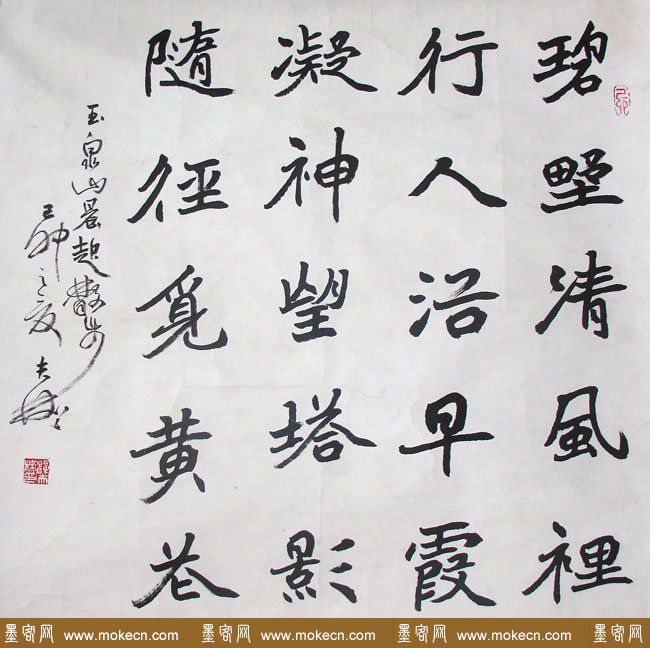 碧墅清風裡
行人沿早霞
凝神望塔影
隨徑覓黄花
玉泉山晨起散步
己卯之夏
墨客网 www.mokecn.com 墨客网 www.mokecn.com 墨客网 www.mokecn.com